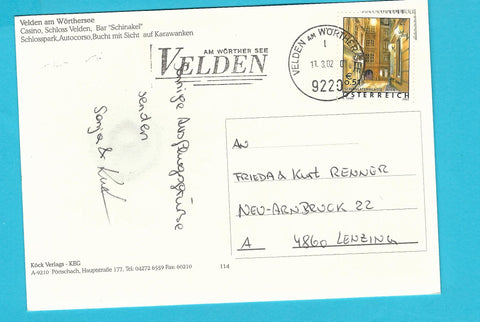 Velden am Wörthersee
Casino, Schloss Velden, Bar "Schinakel"
Schlosspark,Autocorso,Bucht mit Sicht auf Karawanken
AM WÖRTHER SEE
VELDEN
VELDEN AM WÖRTHERSEE
1
9220
€ 0,51
ÖSTERREICH
Ausflugsgrüße
senden
Sonja & Kurt
AN
FRIEDA & Kurt RENNER
NEU-ARNBRUCK 22
A 4860 LENZING
Köck Verlags - KEG
A-9210 Pörtschach, Hauptstraße 177, Tel. 04272 6559 Fax: 60210
114